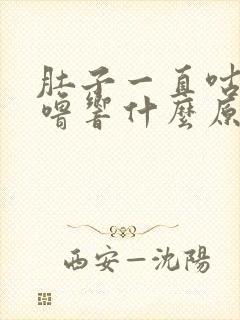 肚子一直咕
嚕響什麼原
西安—沈陽